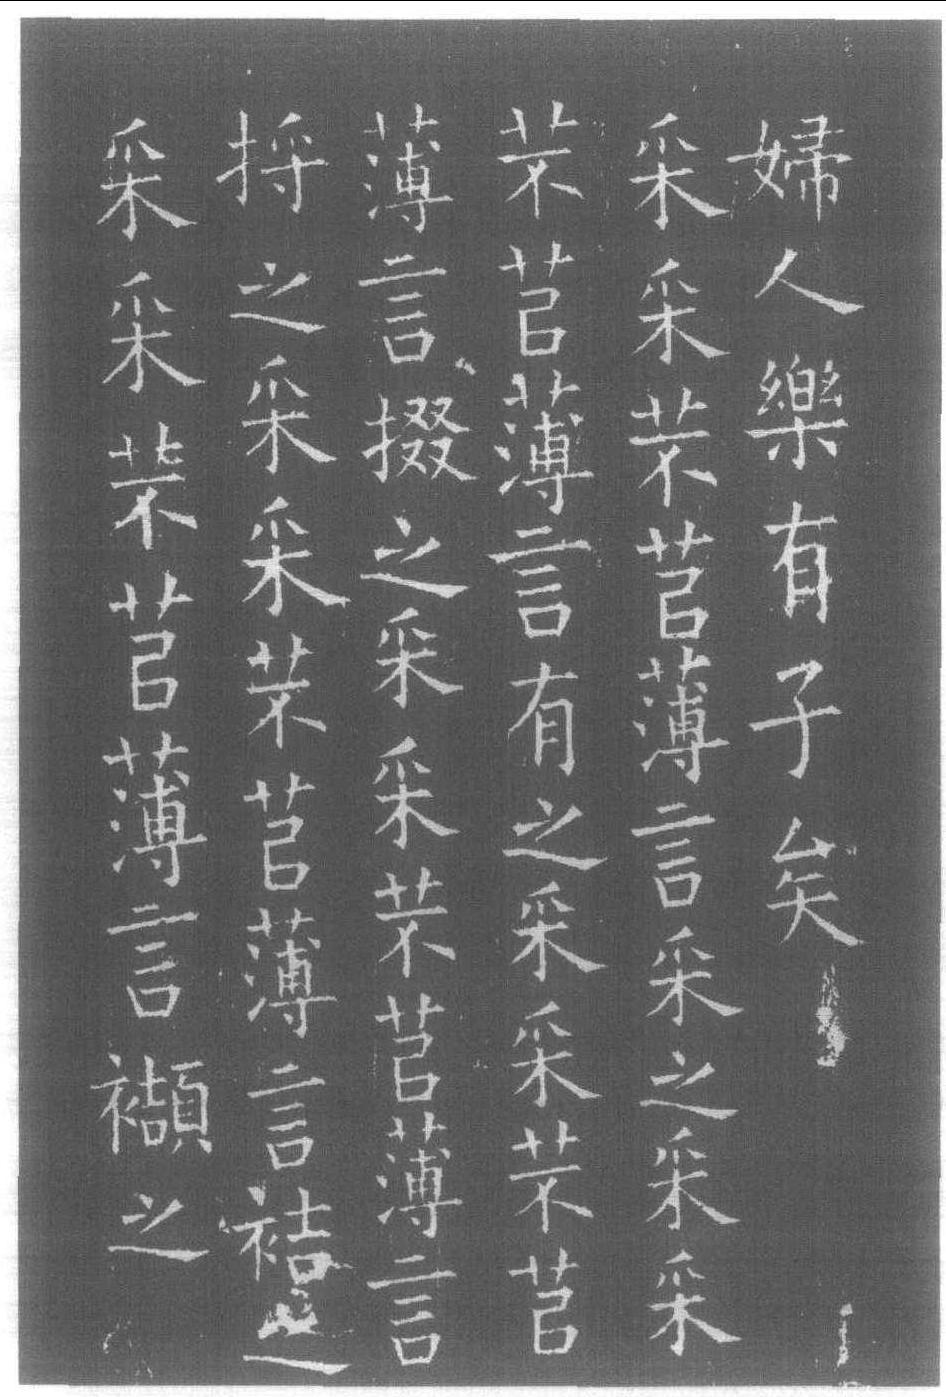 婦人樂有子矣
采采芣苢薄言采之采采
芣苢薄言有之采采芣苢
薄言掇之采采芣苢薄言
捋之采采芣苢薄言袺之
采采芣苢薄言襭之